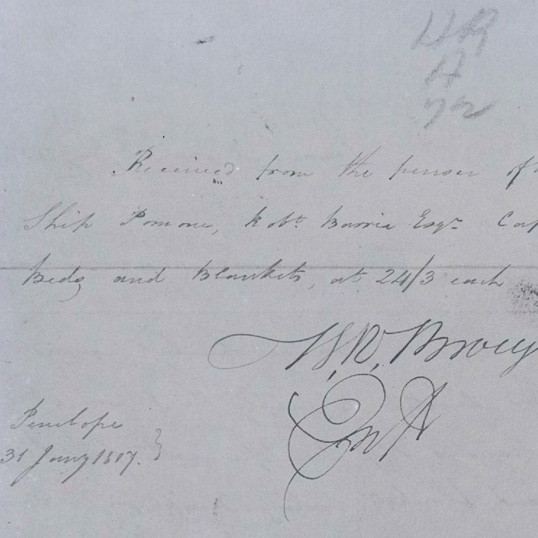 Received from the purser of
Ship Pomone, Robt Barrie Esqr Cap
Beds and Blankets, at 24/3 each
W.R. Broug
Penelope
31 Jany 1807.